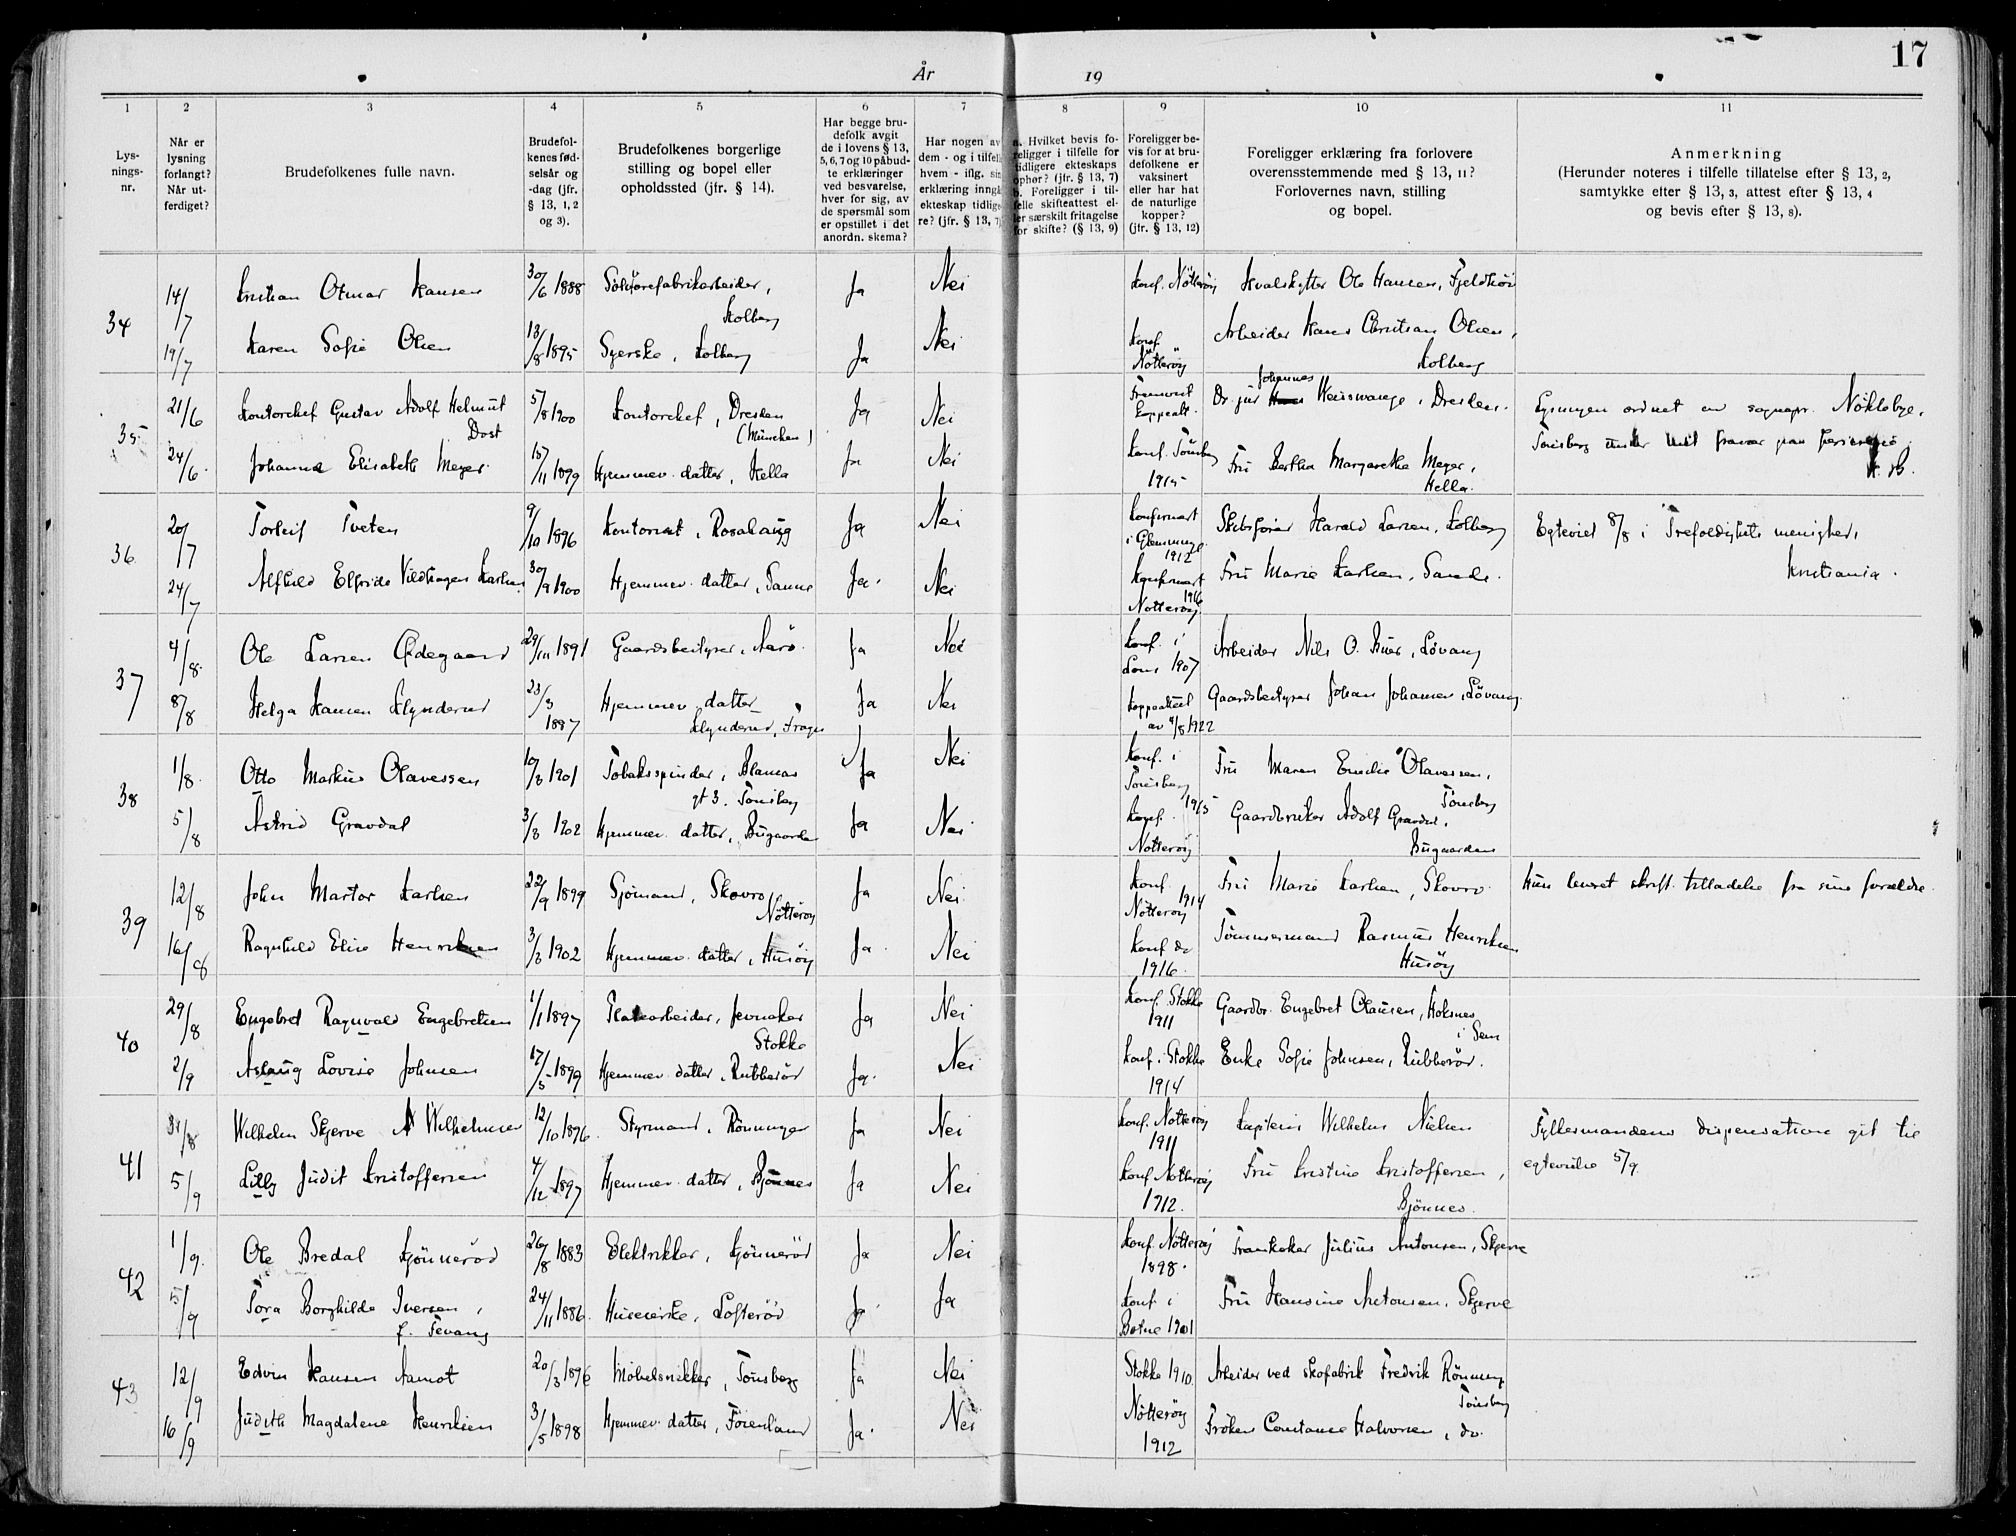 År 19
17
1 2 3 4 5 6 7 8 9 10 11
Lysnings-nr.
Når er lysning forlangt? Når utferdiget?
Brudefolkenes fulle navn.
Brudefolkenes fødselsår og -dag (jfr. § 13, 1, 2 og 3).
Brudefolkenes borgerlige stilling og bopel eller opholdssted (jfr. § 14).
Har begge brudefolk avgit de i lovens § 13, 5, 6, 7 og 10 påbudte erklæringer ved besvarelse, hver for sig, av de spørsmål som er opstillet i det anordn. skema?
Har nogen av dem - og i tilfelle hvem - iflg. sin erklæring inngå ekteskap tidligere? (jfr. § 13, 7)
a. Hvilket bevis foreligger i tilfelle for tidligere ekteskaps ophør? (jfr. § 13, 7) b. Foreligger i tilfelle skifteattest eller særskilt fritagelse for skifte? (§ 13, 9)
Foreligger bevis for at brudefolkene er vaksinert eller har hat de naturlige kopper? (jfr. § 13, 12)
Foreligger erklæring fra forlovere overensstemmende med § 13, 11? Forlovernes navn, stilling og bopel.
Anmerkning (Herunder noteres i tilfelle tillatelse efter § 13, 2, samtykke efter § 13, 3, attest efter § 13, 4 og bevis efter § 13, 8).
34 14/7 Kristian Otmar Hansen 30/6 1888 Ja Nei Konf. Nötteröy Hvalskytter Ole Hansen,
19/7 Karen Sofie Olsen 13/8 1895 Syerske, Kolberg Ja Nei Konf. Nötteröy Arbeider Hans Christian Olsen, Kolberg
35 21/6 Kontorchef Gustav Adolf Helmut Dost 5/8 1900 Kontorchef, Dresden (München) Ja Nei Dr. jur Johannes Dresden.
24/6 Johanna Elisabeth Meyer 15/11 1899 Hjemmev. datter, Hella Ja Nei Konf. Tönsberg 1915 Fru Bertha Margarethe Meyer, Hella.
36 20/7 Torleif Tveten 9/10 1896 Kontorist, Rosahaug Ja Nei Konfirmert i 1912 Skibsförer Harald Larsen, Kolberg Egteviet 8/8 i Trefoldighets menighet, Kristiania.
24/7 Alfhild Elfride Karlsen 30/9 1900 Hjemmev. datter, Ja. Nei Konfirmert 1916 Nötteröy Fru Marie Karlsen,
37 4/8 Ole Larsen Ødegaard 29/10 1891 Gaardsbestyrer, Aarö Ja Nei Konf. i Lom 1907 Arbeider Nils O. Lövang
8/8 Helga Hansen Klynderud 23/3 1897 Hjemmev. datter Klynderud, Ja Nei Koppeattest av 4/8 1922 Gaardsbestyrer Johan Johansen, Lövang.
38 1/8 Otto Markus Olavessen 10/8 1901 Tobaksspinder, gt 3. Tönsberg Ja Nei Konf. i Tönsberg 1915 Fru Maren Emilie Olavessen, Tönsberg
5/8 Astrid Gravdal 3/8 1902 Hjemmev. datter, Bugaarden Ja Nei Konf. Nötteröy Gaardbruker Adolf Gravdal, Bugaarden
39 12/8 John Marton Karlsen 22/9 1899 Sjömand, Skovro Nötteröy Ja Nei Konf 1914 Nötteröy Fru Marie Karlsen, Skovro. Hun leveret skrift. tilladelse fra sine forældre.
16/8 Ragnhild Elise Henriksen 3/8 1902 Hjemmev. datter, Husöy Ja. Nei Konf do 1916. Tömmermand Rasmus Henriksen Husöy
40 29/8 Engebret Ragnvald Engebretsen 1/1 1897 Platearbeider, Jevnaker Stokke Ja Nei Konf. Stokke 1911 Gaardbr. Engebret Olausen, i Sem
2/9 Aslaug Lovise Johnsen 17/5 1899 Hjemmev. datter, Rubberöd Ja. Nei Konf. i Stokke 1914 Enke Sofie Johnsen, Rubberöd.
41 31/8 Wilhelm Skjerve N Wilhelmsen 12/10 1896 Styrmand, Rönningen Ja Nei Konf. Nötteröy 1911 Kaptein Wilhelm Nielsen Fylkesmandens dispensation git til egtevielse 5/9
5/9 Lilly Judit Kristoffersen 4/12 1897 Hjemmev. datter, Bjönnes Ja Nei Konf Nötteröy 1912. Fru Kristine Kristoffersen, Bjönnes.
42 1/9. Ole Bredal Kjönneröd 26/8 1883 Elektrikker, Kjönneröd Ja Nei Konf. Nötteröy 1898. Trankoker Julius Antonsen, Skjerve
5/9 Tora Borghilde Iversen, f. Tevang 24/11 1886. Huseierske, Lofteröd Ja Ja Konf i Botne 1901 Fru Hansine Antonsen, Skjerve
43 12/9 Edvin Hansen Aamot 20/3 1896 Möbelsnekker, Tönsberg Ja Nei Stokke 1910. Arbeider ved skofabrik Fredrik Rönning Tönsberg
16/9 Judith Magdalene Henriksen 3/5 1898 Hjemmev. datter, Förenland Ja. Nei Nötteröy 1912 Fröken Constance Halvorsen, do.